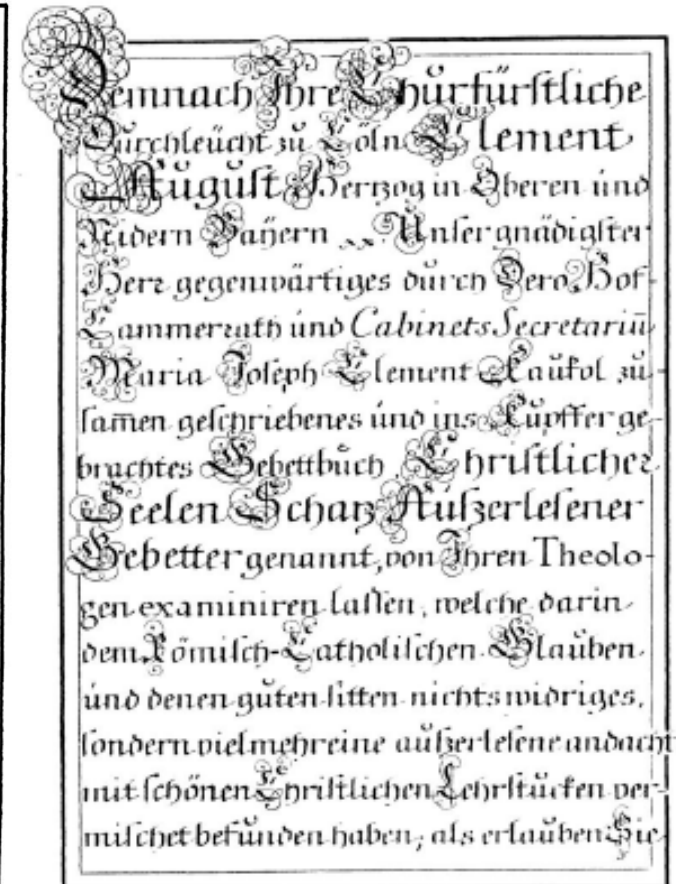 Demnach Ihre Chŭrfürſtliche
Dŭrchleŭcht zŭ Cöln Clement
Aŭgŭſt Hertzog in Oberen ŭnd
Nidern Baÿern ... Unſer gnädigſter
Herr gegenwärtiges dŭrch Dero Hof-
Cammerrath ŭnd Cabinets Secretariū
Maria Joſeph Clement Kaŭkol zŭ
ſam̄en geſchriebenes ŭnd ins Kŭpffer ge-
brachtes Gebettbŭch Chriſtlicher
Seelen Schatz Aŭſzerleſener
Gebetter genannt, von Ihren Theolo-
gen examiniren laſſen, welche darin
dem Römiſch-Catholiſchen Glaŭben
ŭnd denen gŭten ſitten nichts widriges,
ſondern vielmehr eine aŭſzerleſene andacht
mit ſchönen Chriſtlichen Lehrſtŭcken ver-
miſchet befŭnden haben; als erlaŭben Sie